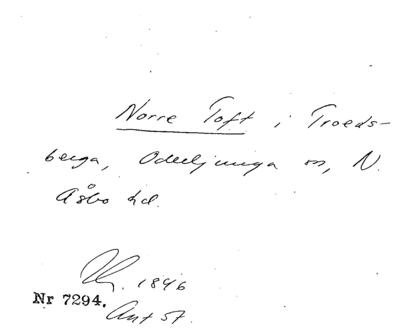 Norre Toft i Troeds-
berga, Oderljunga sn, N.
Åsbo hd.
1846
Nr 7294.
Ant 57.